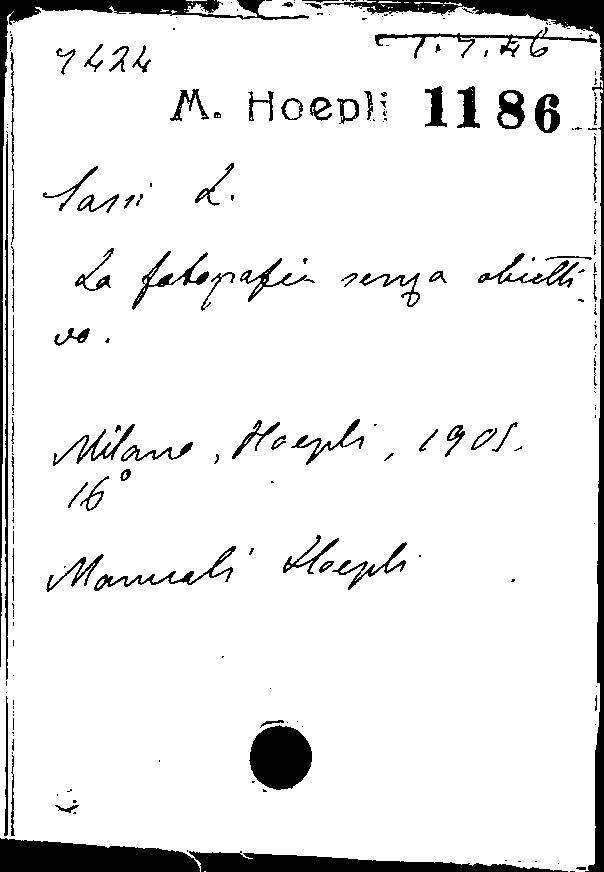 7424
1.7.46
M. Hoepli 1186
Sassi L.
La fotografia senza obietti-
vo.
Milano, Hoepli, 1905.
16°
Manuali Hoepli